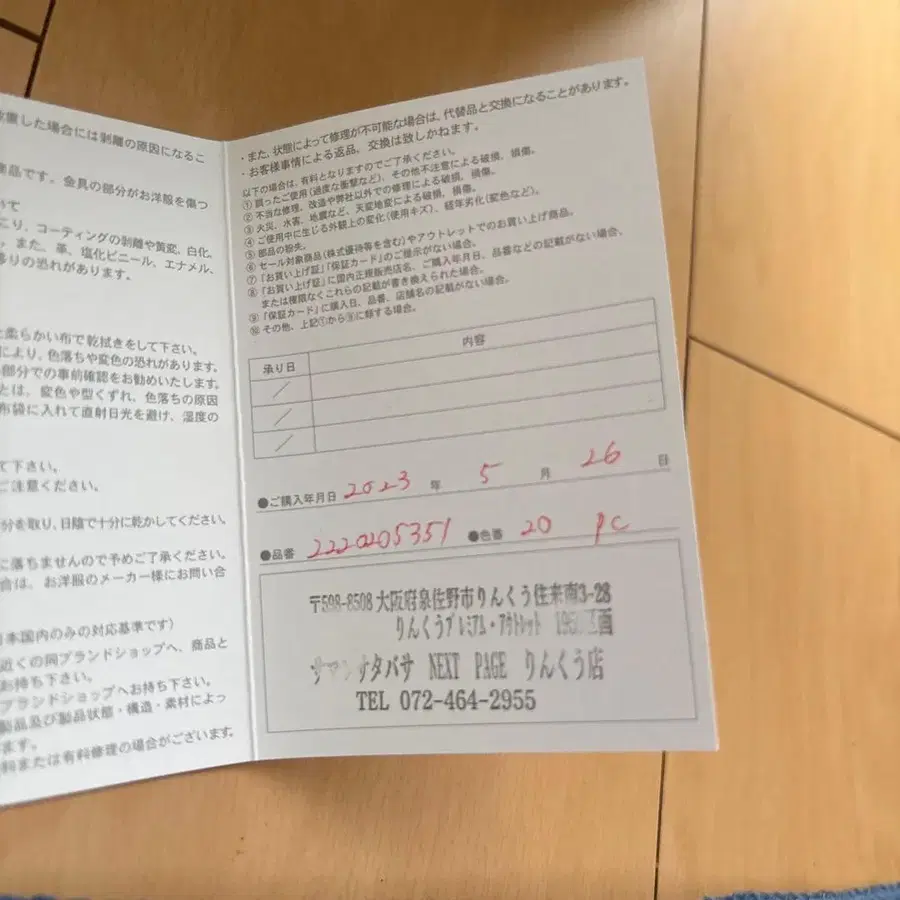 放置した場合には剥離の原因になるこ
商品です。金具の部分がお洋服を傷つ
いて
こり、コーティングの剥離や黄変、白化、
。また、革、塩化ビニール、エナメル、
移りの恐れがあります。
柔らかい布で乾拭きをして下さい。
により、色落ちや変色の恐れがあります。
部分での事前確認をお勧めいたします。
とは、変色や型くずれ、色落ちの原因
布袋に入れて直射日光を避け、湿度の
て下さい。
ご注意ください。
分を取り、日陰で十分に乾かしてください。
に落ちませんので予めご了承ください。
合は、お洋服のメーカー様にお問い合
日本国内のみの対応基準です)
近くの同ブランドショップへ、商品と
お持ち下さい。
ブランドショップへお持ち下さい。
製品及び製品状態・構造・素材によっ
ます。
料または有料修理の場合がございます。
・また、状態によって修理が不可能な場合は、代替品と交換になることがあります。
・お客様事情による返品、交換は致しかねます。
以下の場合は、有料となりますのでご了承ください。
① 誤ったご使用(過度な衝撃など)、その他不注意による破損、損傷。
② 不当な修理、改造や弊社以外での修理による破損、損傷。
③ 火災、水害、地震など、天変地変による破損、損傷。
④ ご使用中に生じる外観上の変化(使用キズ)、経年劣化(変色など)。
⑤ 部品の紛失。
⑥ セール対象商品(株式優待等を含む)やアウトレットでのお買い上げ商品。
⑦ 「お買い上げ証」「保証カード」のご提示がない場合。
⑧ 「お買い上げ証」に国内正規販売店名、ご購入年月日、品番などの記載がない場合、
または権限なくこれらの記載が書き換えられた場合。
⑨ 「保証カード」に購入日、品番、店舗名の記載がない場合。
⑩ その他、上記①から⑨に類する場合。
承り日 内容
/
/
/
●ご購入年月日 2023 年 5 月 26 日
●品番 2220205351 ●色番 20 PC
〒598-8508 大阪府泉佐野市りんくう往来南3-28
りんくうプレミアム・アウトレット
サマンサタバサ NEXT PAGE りんくう店
TEL 072-464-2955